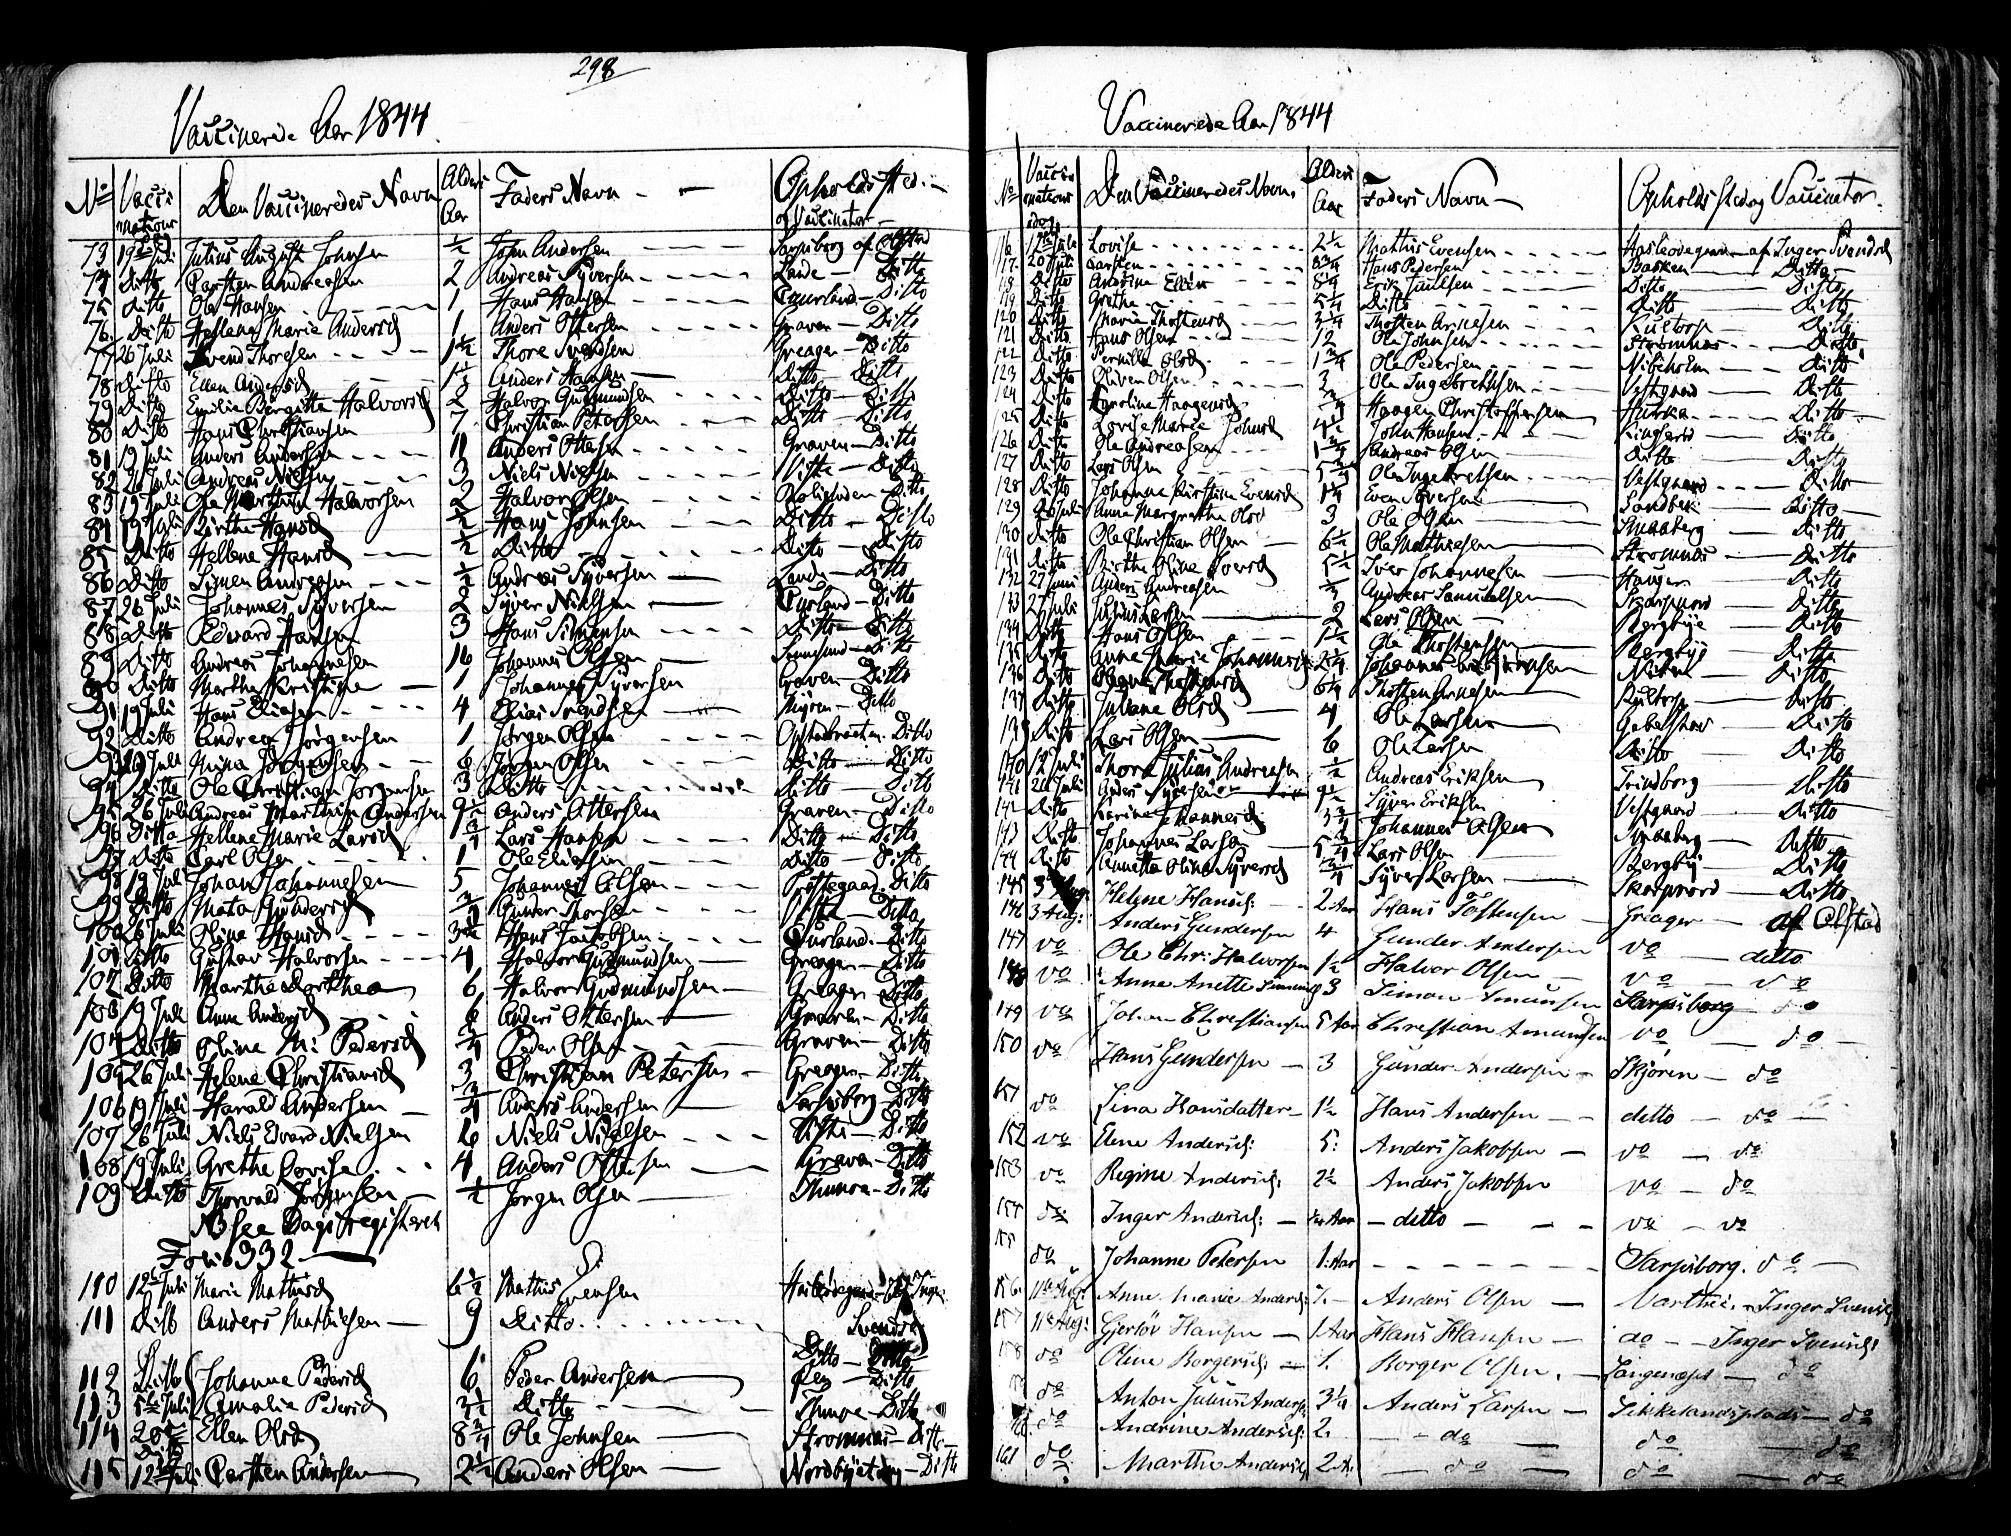 298
Vaccinerede Aar 1844
No Vacci nations Den Vaccineredes Navn Alder Aar Faders Navn Opholdssted og Vaccinator
73 19de Juli Julius August Johnsen ½ John Andersen Sarpsborg af Olstad
74 Ditto Carsten Andreasen 2 Andreas Syversen Lande Ditto
75 Ditto Ole Hansen 1 Hans Hansen Curland Ditto
76 Ditto Hellene Marie Andersd 1 Anders Ottersen Graven Ditto
77 26 Juli Svend Thoresen 1½ Thore Svendsen Greager Ditto
78 Ditto Ellen Andersd Anders Hansen Ditto Ditto
79 Ditto Emilie Birgitte Halvorsd 2 Halvor Gudmundsen Ditto Ditto
80 Ditto Hans Christiansen 7 Christian Petersen Ditto Ditto
81 19 Juli Anders Andersen 11 Anders Ottesen Graven Ditto
82 26 Juli Andreas Nielsen 3 Niels Nielsen Ditto
83 19 Juli Ole Martinus Halvorsen 2 Halvor Olsen Ditto
84 19 Juli Birthe Hansd ½ Hans Johnsen Ditto Ditto
85 Ditto Hellene Hansd ½ Ditto Ditto Ditto
86 Ditto Simen Andreasen ½ Andreas Syversen Lande Ditto
87 26 Juli Johannes Syversen 2 Syver Nielsen Curland Ditto
88 Ditto Edward Hansen 3 Hans Simensen Ditto Ditto
89 Ditto Andreas Johannesen 16 Johannes Olsen Ditto
90 Ditto Marthe Kristine 1 Johannes Syversen Graven Ditto
91 19 Juli Hans Eliasen 4 Elias Svendsen Ditto
92 Ditto Andreas Jørgensen 1 Jørgen Olsen Ditto
93 19 Juli Mina Jørgensen 6 Jørgen Olsen Ditto Ditto
94 Ditto Ole Christian Jørgensen 3 Ditto Ditto Ditto
95 26 Juli Andreas Marthin Andersen 9½ Anders Ottersen Graven Ditto
96 Ditto Hellene Marie Larsd ¾ Lars Hansen Ditto Ditto
97 Ditto Carl Olsen 1 Ole Eliasen Ditto Ditto
98 19 Juli Johan Johannesen 5 Johannes Olsen Ditto
99 Ditto Mata Gundersd Gunder Thorsen Ditto
100 26 Juli Oline Hansd 3½ Hans Jacobsen Curland Ditto
101 Ditto Gustav Halvorsen 4 Halvor Gudmundsen Greager Ditto
102 Ditto Marthe Dorthea 6 Halvor Gudmundsen Greager Ditto
103 19 Juli Anne Andersd 6 Anders Ottersen Graven Ditto
104 Ditto Oline M: Pedersd ¾ Peder Olsen Graven Ditto
105 26 Juli Helene Christiansd 3 Christian Petersen Greager Ditto
106 19 Juli Harald Andersen ¾ Anders Andersen Sarpsborg Ditto
107 26 Juli Niels Edvard Nielsen 6 Niels Nielsen Ditto
108 19 Juli Grethe Lovise 4 Anders Ottesen Graven Ditto
109 Ditto Thorvald Jørgensen ½ Jørgen Olsen Thunøe Ditto
NB see Dagsregisteret
Folio 332
110 12te Juli Marie Mathisd 6½ Mathis Evensen Hasledegaard af Inger
111 Ditto Anders Mathiesen 9 Ditto Svendsd
112 Ditto Johanne Pedersd 6 Peder Andersen Øen Ditto
113 5te Juli Amalie Pedersd 3½ Ditto Thunøe Ditto
114 20de Ellen Olsd 8¾ Ole Johnsen Strømnes Ditto
115 12te Juli Carsten Andersen 2½ Anders Olsen Ditto
Vaccinerede Aar 1844
No Vacci nations dage Den Vaccineredes Navn Alders Aar Faders Navn Opholdssted og Vaccinator
116 12te Juli Lovise 2½ Mathis Evensen Hasledegaard af Inger Svendsd
117 20 Juli Carsten 8¾ Hans Pedersen Bakken Ditto
118 Ditto Andrine Ellen Erik Ditto Ditto
119 Ditto Grethe 5¼ Ditto Ditto Ditto
120 Ditto Marie Thostensd 3¼ Thosten Arnesen Kultorp Ditto
121 Ditto Hans Olsen 12 Ole Johnsen Strømnes Ditto
122 Ditto Pernille Olsd 1¾ Ole Pedersen Ditto
123 Ditto Oliven Olsen 3 Ole Ingebrethsen Vestgaard Ditto
124 Ditto Karoline Haagensd Haagen Christoffersen Ditto
125 Ditto Lovise Marie Johnsd John Hansen Ditto
126 Ditto Ole Andreasen Andreas Olsen Ditto Ditto
127 Ditto Lars Olsen Ole Ingebretsen Vestgaard Ditto
128 Ditto Johanne Kirstine Evensd Even Syversen Sandbek Ditto
129 26 Juli Anne Margrethe Olsd 3 Ole Olsen Smaaberg Ditto
130 Ditto Ole Christian Olsen 6½ Ole Mathiesen Strømnes Ditto
131 Ditto Birthe Oline Iversd Iver Johannesen Haugen Ditto
132 27 Juni Anders Andreasen Andreas Samuelsen Skarpnord Ditto
133 27 Juli Julius Larsen 2 Lars Olsen Bergbye Ditto
134 Ditto Hans Olsen 1½ Ole Thostensen Bergbye Ditto
135 Ditto Anne Marie Johannesd 2¼ Johannes Ditto
136 Ditto Thostensd 6¼ Thosten Arnesen Kultorp Ditto
137 Ditto Juliane Olsd 4 Ole Larsen Ditto
138 Ditto Lars Olsen 6 Ole Larsen Ditto Ditto
140 12 Juli Thora Julius Andreasen ½ Andreas Eriksen Trindborg Ditto
141 20 Juli Anders Syversen 9½ Syver Eriksen Vestgaard Ditto
142 Ditto Karine Johannesd 3¾ Johannes Olsen Smaaberg Ditto
143 Ditto Johannes Larsen Lars Olsen Bergby Ditto
144 Ditto Annette Oline Syversd ¾ Syver Larsen Skarpnord Ditto
145 3 Aug: Helene Hansd: 2 Aar Hans Tostensen Greager af Olstad
146 3 Aug: Anders Gundersen 4 Gunder Andersen do ditto
147 do Ole Chr: Halvorsen 1½ Halvor Olsen do do
148 do Anne Anette Simensd 3 Simon Amundsen Sarpsborg do
149 do Johan Christiansen 5 Aar Christian Amundsen do do
150 do Hans Gundersen 3 Gunder Andersen Skjøren do
151 do Lina Hansdatter 1½ Hans Andersen ditto do
152 do Elene Andersd: 5: Anders Jakobsen do do
153 do Regine Andersd: 2½ Anders Jakobsen do do
154 do Inger Andersd: Aar ditto do do
155 do Johanne Petersen 1: Aar Sarpsborg. do
156 11te Aug: Anne Marie Andersd: 7. Anders Olsen Narthei. Inger Svensd:
157 11te Aug: Gjerløv Hansen 1 Aar Hans Hansen do Inger Svensd:
158 do Oline Borgersd: 1. Borger Olsen. Langenæset do
159 do Anton Julius Andersen 3¼ Anders Larsen Sikkelandsplads do
160 do Andrine Andersd: 2. do do do
161 do Marthe Andersd: 2 A. do do do